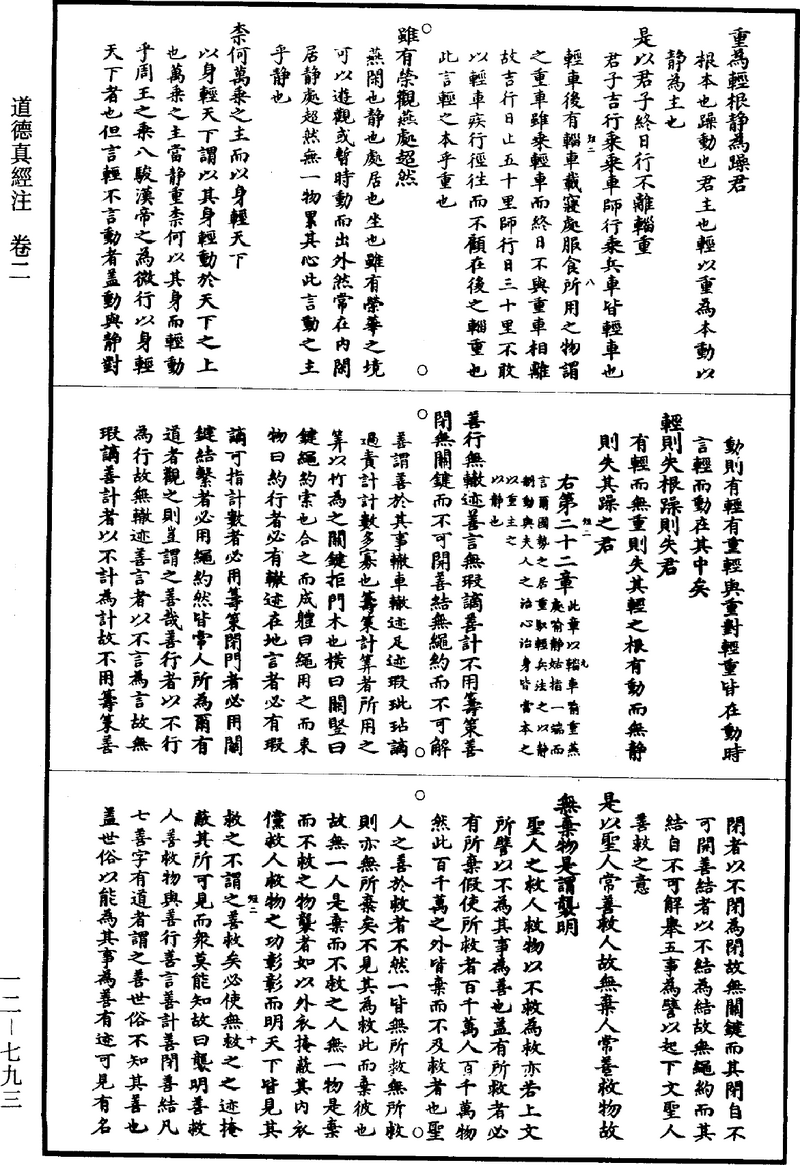 道德真經注　卷二
一二－七九三
重為輕根靜為躁君
根本也躁動也君主也輕以重為本動以
靜為主也
是以君子終日行不離輜重
君子吉行乘乘車師行乘兵車皆輕車也
輕車後有輜車載寢處服食所用之物謂
之重車雖乘輕車而終日不與重車相離
故吉行日止五十里師行日三十里不敢
以輕車疾行徑往而不顧在後之輜重也
此言輕之本乎重也
雖有榮觀燕處超然
燕閑也靜也處居也坐也雖有榮華之境
可以遊觀或暫時動而出外然常在內閑
居靜處超然無一物累其心此言動之主
乎靜也
柰何萬乘之主而以身輕天下
以身輕天下謂以其身輕動於天下之上
也萬乘之主當靜重柰何以其身而輕動
乎周王之乘八駿漢帝之為微行以身輕
天下者也但言輕不言動者蓋動與靜對
動則有輕有重輕與重對輕重皆在動時
言輕而動在其中矣
輕則失根躁則失君
有輕而無重則失其輕之根有動而無靜
則失其躁之君
右第二十二章
此章以輜車喻重燕
處喻靜姑指一端而
言爾國勢之居重馭輕兵法之以靜
制動與夫人之治心治身皆當本之
以重主之
以靜也
善行無轍迹善言無瑕讁善計不用籌策善
閉無關鍵而不可開善結無繩約而不可解
善謂善於其事轍車轍迹足迹瑕玼玷讁
過責計計數多寡也籌策計算者所用之
筭以竹為之關鍵拒門木也橫曰關豎曰
鍵繩約索也合之而成體曰繩用之而束
物曰約行者必有轍迹在地言者必有瑕
讁可指計數者必用籌策閉門者必用關
鍵結繫者必用繩約然皆常人所為爾有
道者觀之則豈謂之善哉善行者以不行
為行故無轍迹善言者以不言為言故無
瑕讁善計者以不計為計故不用籌策善
閉者以不閉為閉故無關鍵而其閉自不
可開善結者以不結為結故無繩約而其
結自不可解舉五事為譬以起下文聖人
善救之意
是以聖人常善救人故無棄人常善救物故
無棄物是謂襲明
聖人之救人救物以不救為救亦若上文
所譬以不為其事為善也蓋有所救者必
有所棄假使所救者百千萬人百千萬物
然此百千萬之外皆棄而不及救者也聖
人之善於救者不然一皆無所救無所救
則亦無所棄矣不見其為救此而棄彼也
故無一人是棄而不救之人無一物是棄
而不救之物襲者如以外衣掩蔽其內衣
儻救人救物之功彰彰而明天下皆見其
救之不謂之善救矣必使無救之之迹掩
蔽其所可見而眾莫能知故曰襲明善救
人善救物與善行善言善計善閉善結凡
七善字有道者謂之善世俗不知其善也
蓋世俗以能為其事為善有迹可見有名